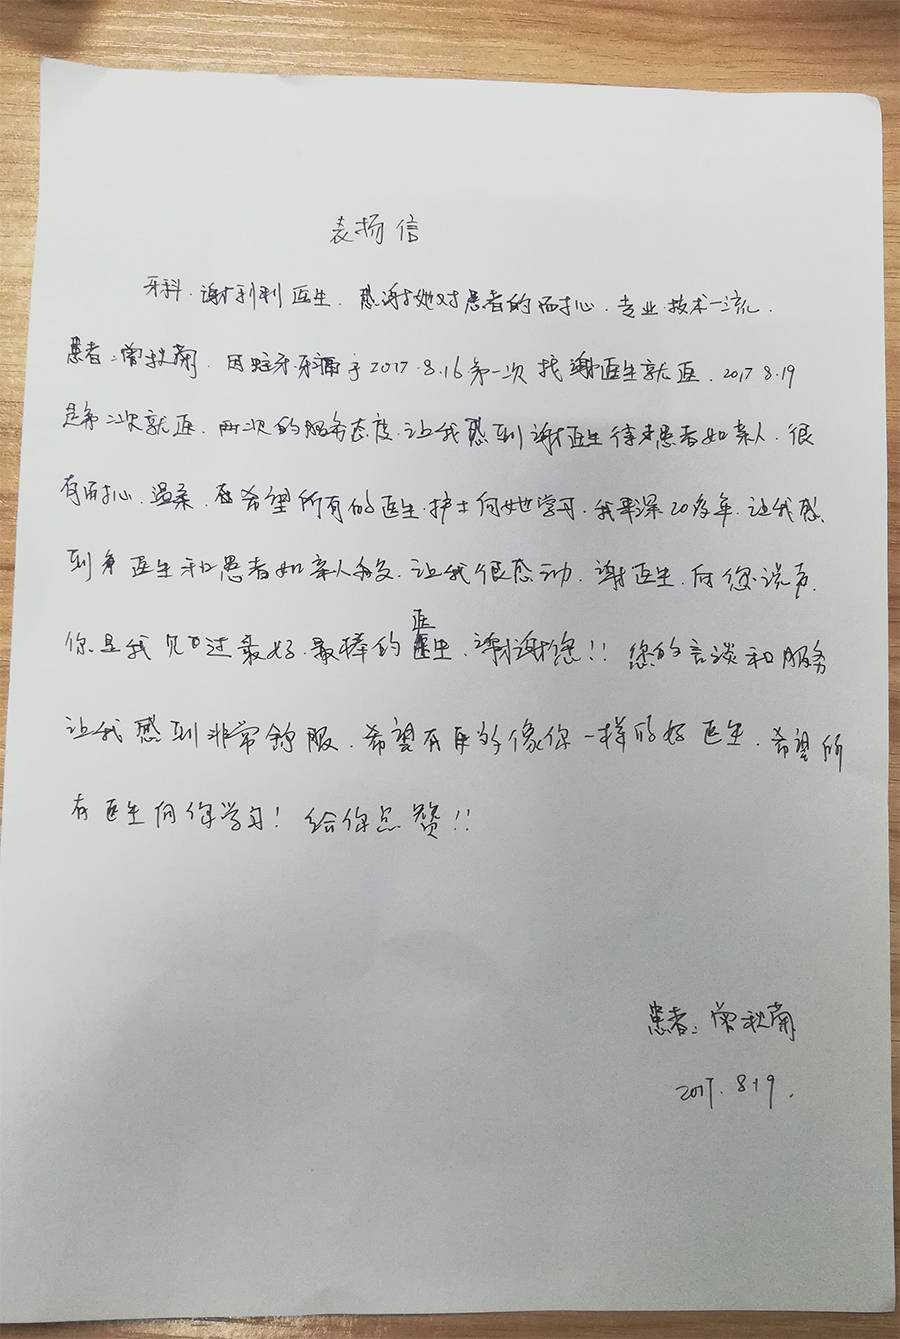 表扬信
牙科.谢利利医生.感谢她对患者的耐心.专业技术一流.
患者:曾秋菊.因蛀牙.牙痛于2017.8.16第一次找谢医生就医.2017 8.19
是第二次就医.两次的服务态度.让我感到谢医生待患者如亲人.很
有耐心.温柔.在希望所有的医生.护士向她学习.我来深20多年.让我感
到身医生和患者如亲人.让我很感动.谢医生.向您说声.
你是我见过最好.最棒的医生.谢谢您!!您的言谈和服务
让我感到非常舒服.希望有更多像你一样的好医生.希望所
有医生向你学习!给你点赞!!
患者:曾秋菊
2017.8.19.